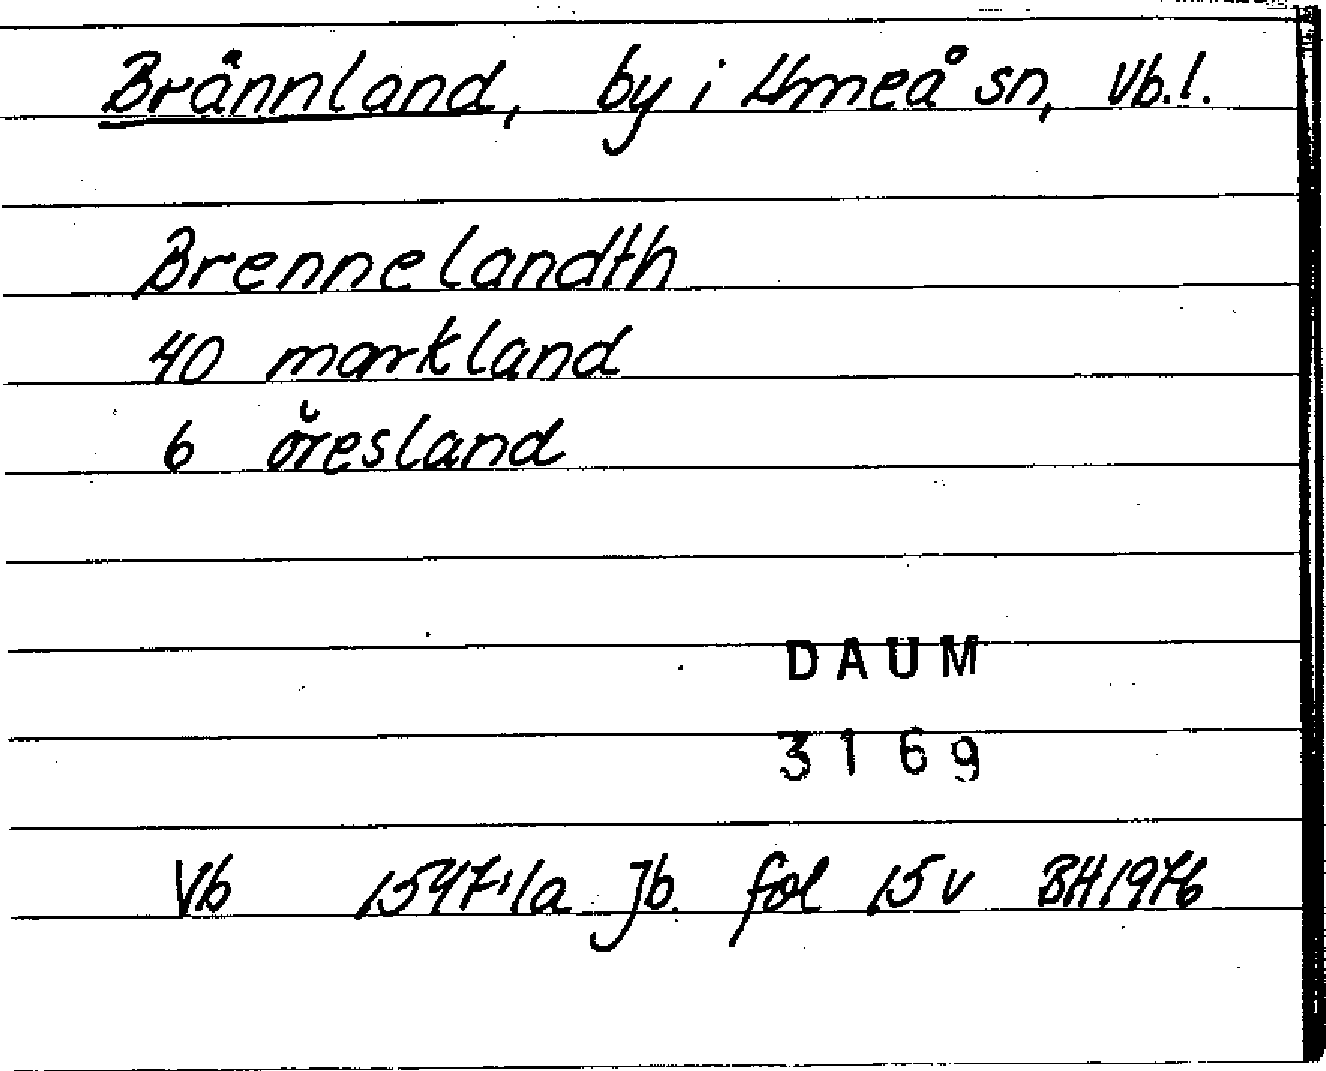 Brännland, by i Umeå sn, Vb.l.
Brennelandth
40 markland
6 öresland
DAUM
3169
Vb 1547:1a Jb. fol 15 v BH 1976